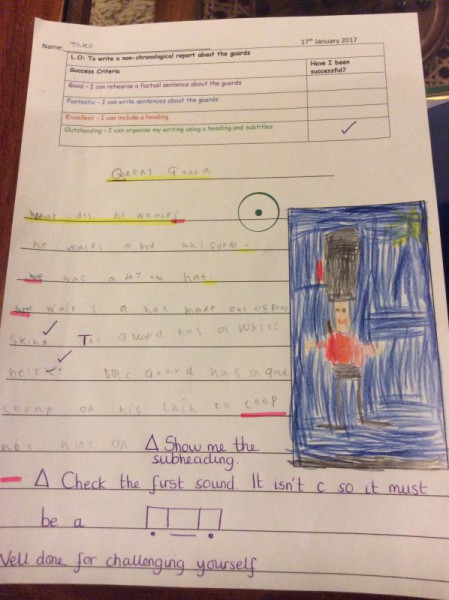 Name:
17th January 2017
L.O: To write a non-chronological report about the guards
Success Criteria
Have I been successful?
Good – I can rehearse a factual sentence about the guards
Fantastic – I can write sentences about the guards
Excellent – I can include a heading
Outstanding – I can organise my writing using a heading and subtitles
Queens Guard
he
a red uniform.
has a hat.
a hat made out of
Skin. The guard has a white
belt. the guard has a
strap on his chin to coop
hat on
Δ Show me the
subheading.
Δ Check the first sound. It isn't c so it must
be a
Well done for challenging yourself